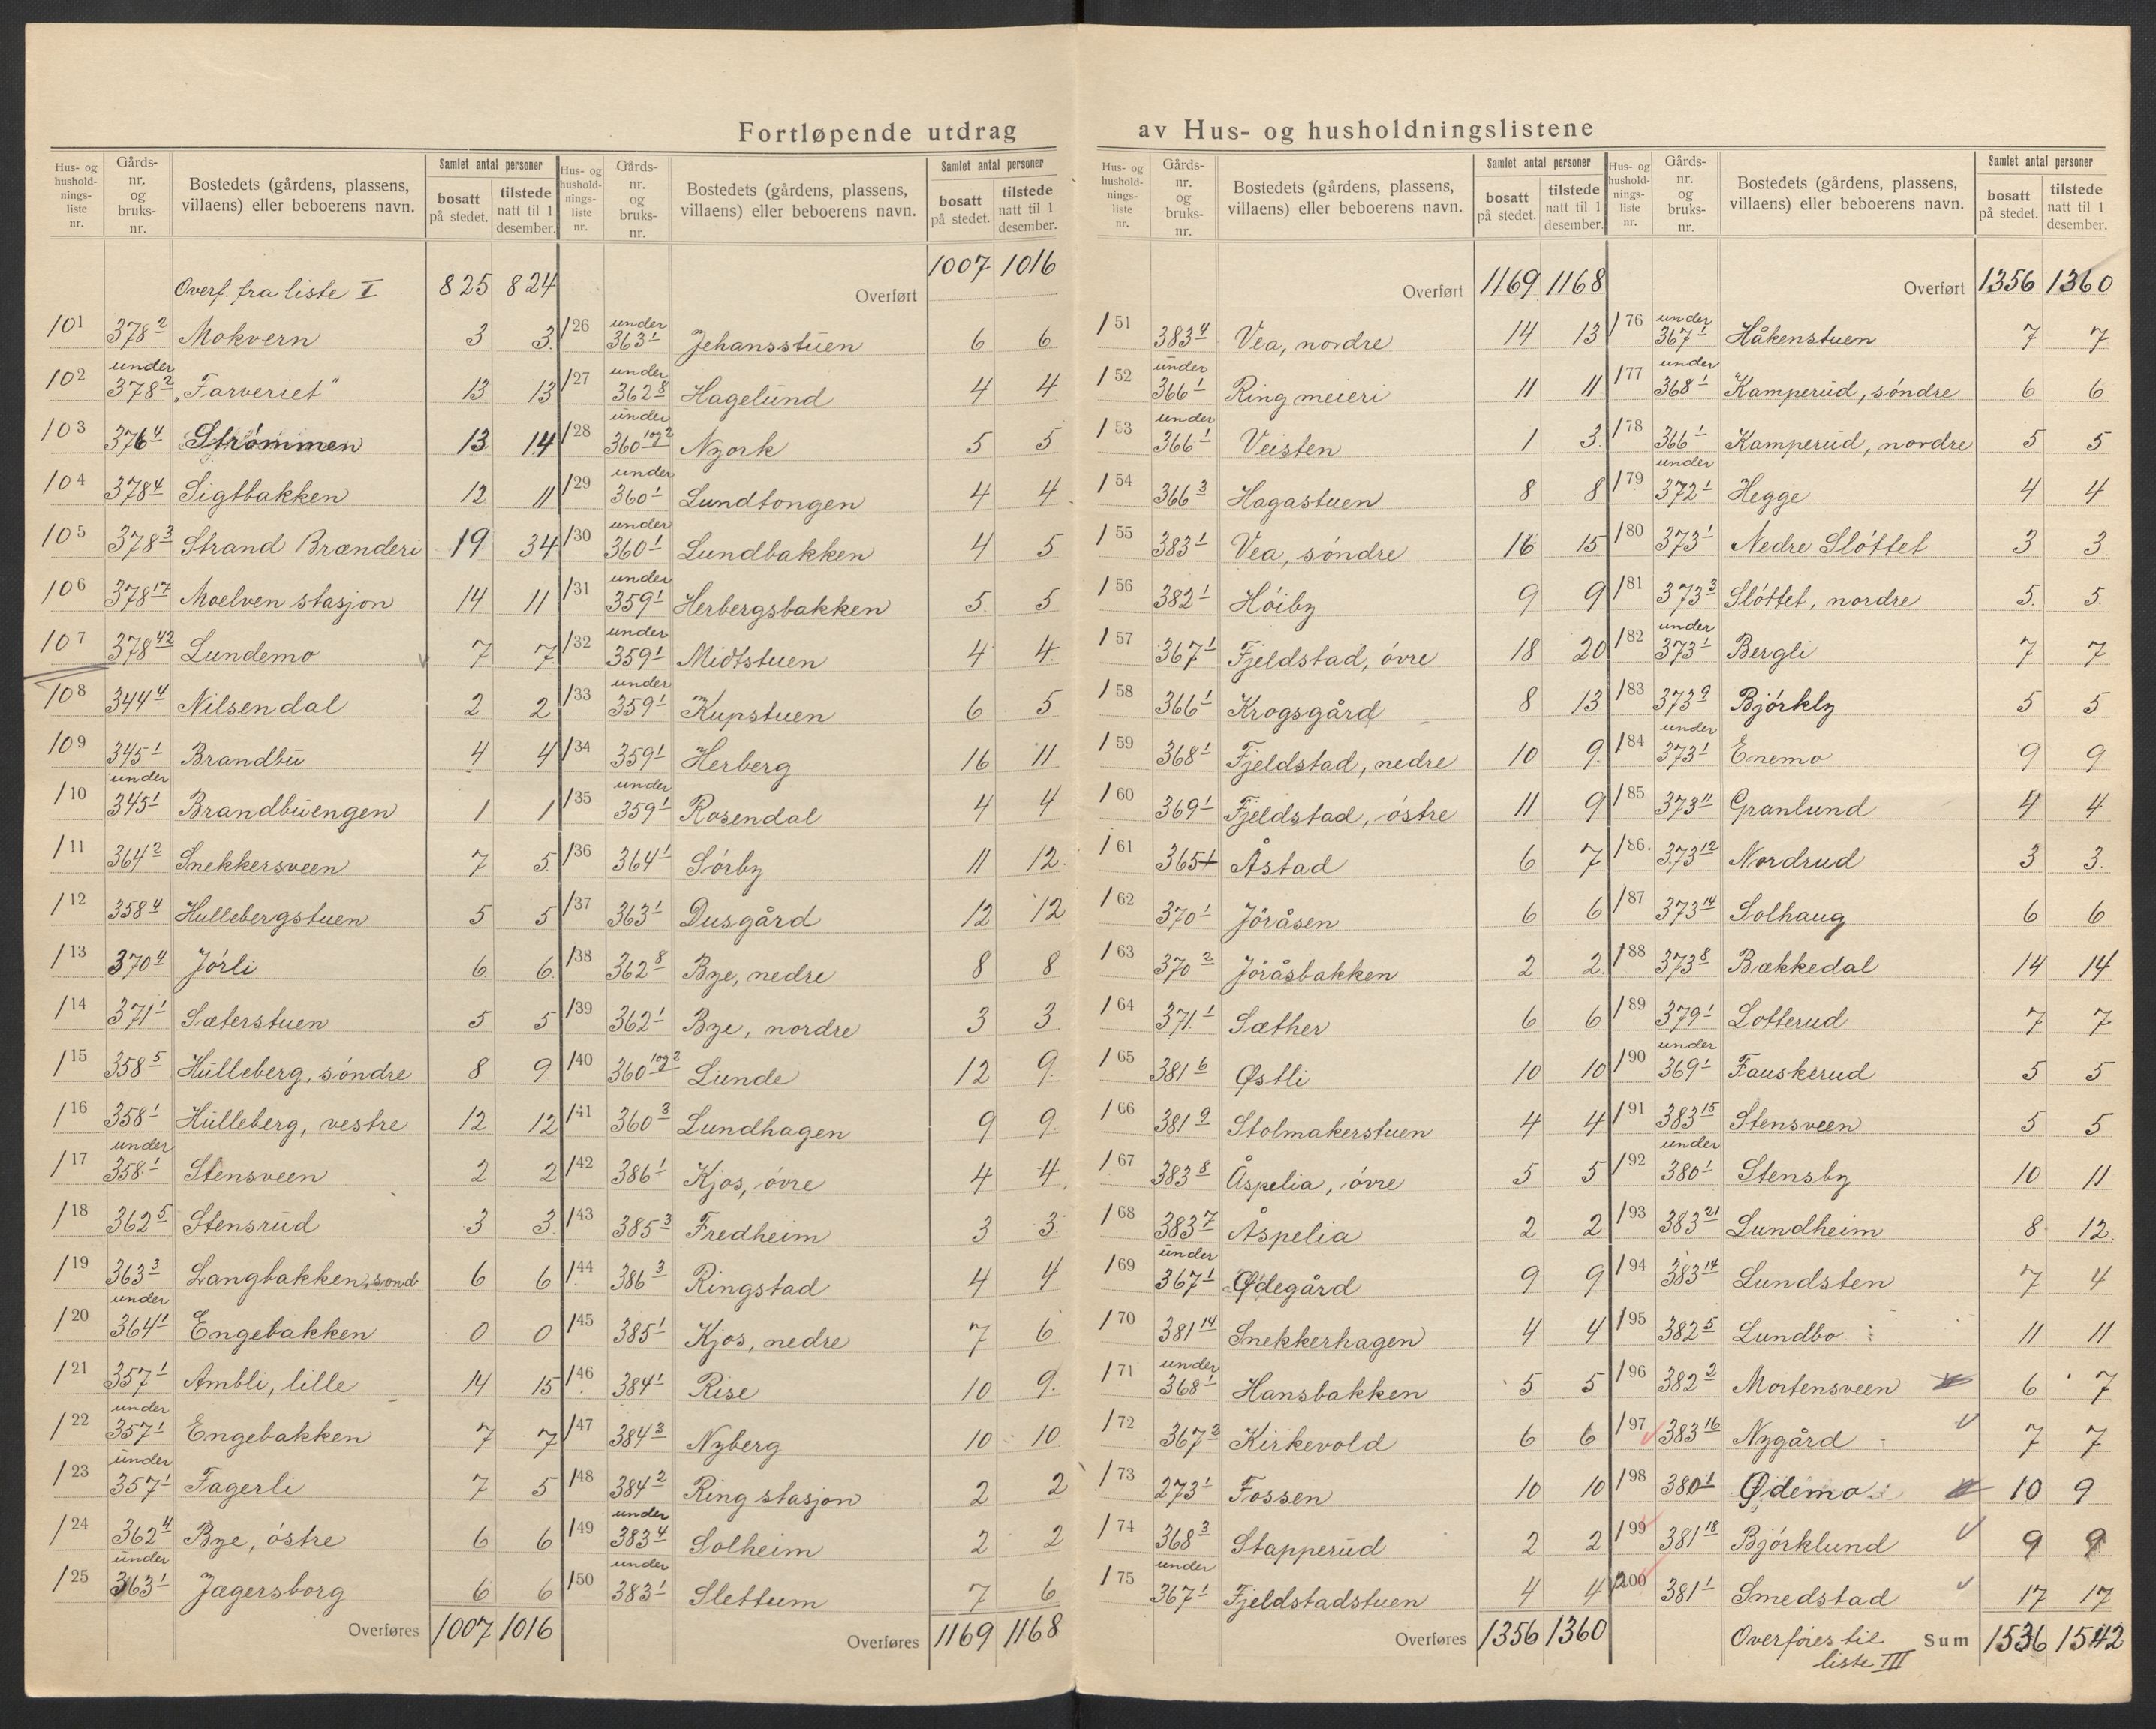 Fortløpende utdrag av Hus- og husholdningslistene
Hus- og husholdnings-liste nr. | Gårds-nr. og bruks-nr. | Bostedets (gårdens, plassens, villaens) eller beboerens navn. | Samlet antal personer bosatt på stedet. | tilstede natt til 1 desember.
Overf. fra liste I 825 824
101 378² Mokvern 3 3
102 under 378² „Farveriet" 13 13
103 376⁴ Strømmen 13 14
104 378⁴ Sigtbakken 12 11
105 378³ Strand Brænderi 19 34
106 378¹⁷ Moelven stasjon 14 11
107 378⁴² Lundemo 7 7
108 344⁴ Nilsendal 2 2
109 345¹ Brandbu 4 4
110 under 345¹ Brandbuengen 1 1
111 364² Snekkersveen 7 5
112 358⁴ Hullebergstuen 5 5
113 370⁴ Jórli 6 6
114 371¹ Sæterstuen 5 5
115 358⁵ Hulleberg, søndre 8 9
116 358¹ Hulleberg, vestre 12 12
117 under 358¹ Stensveen 2 2
118 362⁵ Stensrud 3 3
119 363³ Langbakken, sønd 6 6
120 under 364¹ Engebakken 0 0
121 357¹ Ambli, lille 14 15
122 under 357¹ Engebakken 7 7
123 under 357¹ Fagerli 7 5
124 362⁴ Bye, østre 6 6
125 under 363¹ Jægersborg 6 6
Overføres 1007 1016
Hus- og husholdnings-liste nr. | Gårds-nr. og bruks-nr. | Bostedets (gårdens, plassens, villaens) eller beboerens navn. | Samlet antal personer bosatt på stedet. | tilstede natt til 1 desember.
Overført 1007 1016
126 under 363¹ Jehansstuen 6 6
127 under 362⁸ Hagelund 4 4
128 under 360¹ᵒᵍ² Nyork 5 5
129 under 360¹ Lundtongen 4 4
130 under 360¹ Lundbakken 4 5
131 under 359¹ Herbergsbakken 5 5
132 under 359¹ Midtstuen 4 4
133 under 359¹ Kupstuen 6 5
134 359¹ Herberg 16 11
135 under 359¹ Rosendal 4 4
136 364¹ Sørby 11 12
137 363¹ Dusgård 12 12
138 362⁸ Bye, nedre 8 8
139 362¹ Bye, nordre 3 3
140 360¹ᵒᵍ² Lunde 12 9
141 360³ Lundhagen 9 9
142 386¹ Kjos, øvre 4 4
143 385³ Fredheim 3 3
144 386³ Ringstad 4 4
145 385¹ Kjos, nedre 7 6
146 384¹ Rise 10 9
147 384³ Nyberg 10 10
148 384² Ring stasjon 2 2
149 under 383⁴ Solheim 2 2
150 under 383¹ Slettum 7 6
Overføres 1169 1168
Hus- og husholdnings-liste nr. | Gårds-nr. og bruks-nr. | Bostedets (gårdens, plassens, villaens) eller beboerens navn. | Samlet antal personer bosatt på stedet. | tilstede natt til 1 desember.
Overført 1169 1168
151 383⁴ Vea, nordre 14 13
152 under 366¹ Ring meieri 11 11
153 under 366¹ Veisten 1 3
154 366³ Hagastuen 8 8
155 383¹ Vea, søndre 16 15
156 382¹ Høiby 9 9
157 367¹ Fjeldstad, øvre 18 20
158 366¹ Krogsgård 8 13
159 368¹ Fjeldstad, nedre 10 9
160 369¹ Fjeldstad, østre 11 9
161 365¹ Åstad 6 7
162 370¹ Jøråsen 6 6
163 370² Jøråsbakken 2 2
164 371¹ Sæther 6 6
165 381⁶ Østli 10 10
166 381⁹ Stolmakerstuen 4 4
167 383⁸ Åspelia, øvre 5 5
168 383⁷ Åspelia 2 2
169 under 367¹ Ødegård 9 9
170 381¹⁴ Snekkerhagen 4 4
171 under 368¹ Hansbakken 5 5
172 367² Kirkevold 6 6
173 273¹ Fossen 10 10
174 368³ Stapperud 2 2
175 under 367¹ Fjeldstadstuen 4 4
Overføres 1356 1360
Hus- og husholdnings-liste nr. | Gårds-nr. og bruks-nr. | Bostedets (gårdens, plassens, villaens) eller beboerens navn. | Samlet antal personer bosatt på stedet. | tilstede natt til 1 desember.
Overført 1356 1360
176 under 367¹ Håkenstuen 7 7
177 under 368¹ Kamperud, søndre 6 6
178 366¹ Kamperud, nordre 5 5
179 under 372¹ Hegge 4 4
180 373¹ Nedre Sløttet 3 3
181 373³ Sløttet, nordre 5 5
182 under 373¹ Bergli 7 7
183 373⁹ Bjørkly 5 5
184 under 373¹ Enemo 9 9
185 373¹¹ Granlund 4 4
186 373¹² Nordrud 3 3
187 373¹⁴ Solhaug 6 6
188 373⁸ Bækkedal 14 14
189 379¹ Lotterud 7 7
190 under 369¹ Fauskerud 5 5
191 383¹⁵ Stensveen 5 5
192 under 380¹ Stensby 10 11
193 383²¹ Lundheim 8 12
194 383¹⁴ Lundsten 7 4
195 382⁵ Lundbo 11 11
196 382² Mortensveen 6 7
197 383¹⁶ Nygård 7 7
198 380¹ Ødemo 10 9
199 381¹⁸ Bjørklund 9 9
200 381¹ Smedstad 17 17
Overføres til Sum 1536 1542
liste III